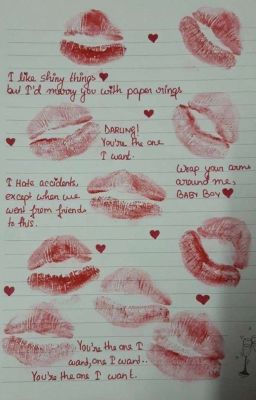 I like shiny things
but I'd marry you with paper rings
DARLING!
You're the one
I want.
I Hate accidents,
except when we
went from friends
to this.
Wrap your arms
around me,
BABY BOY
You're the one I
want, one I want..
You're the one I want.